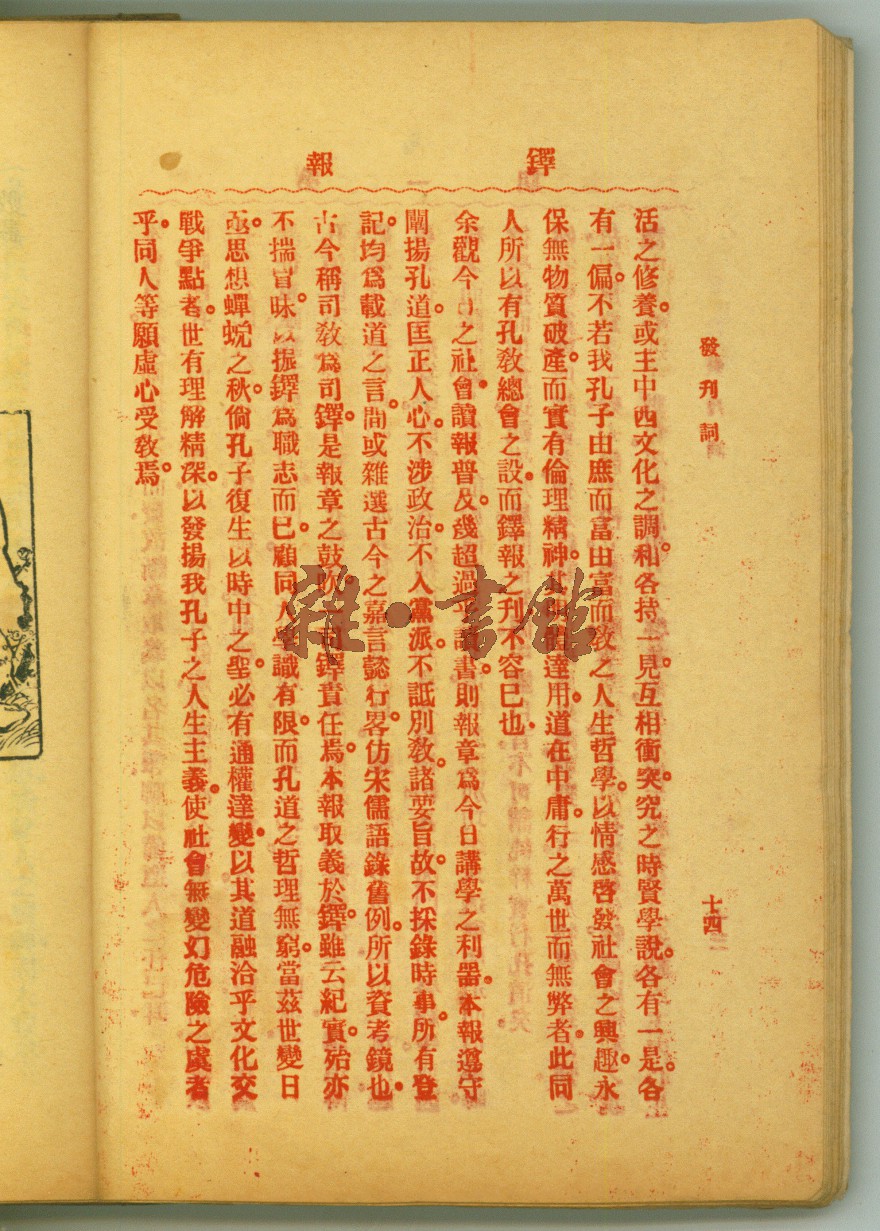 鐸報
發刊詞
十四
活之修養。或主中西文化之調和。各持一見。互相衝突。究之時賢學說。各有一是。各
有一偏。不若我孔子由庶而富由富而敎之人生哲學。以情感啓發社會之興趣。永
保無物質破產。而實有倫理精神。達用。道在中庸。行之萬世而無弊者。此同
人所以有孔敎總會之設。而鐸報之刊不容已也。
余觀今日之社會。讀報普及。幾超過乎讀書。則報章爲今日講學之利器。本報遵守
闡揚孔道。匡正人心。不涉政治。不入黨派。不詆別敎。諸要旨。故不採錄時事。所有登
記。均爲載道之言。間或雜選古今之嘉言懿行。畧仿宋儒語錄舊例。所以資考鏡也。
古今稱司敎爲司鐸。是報章之鼓吹。司鐸責任焉。本報取義於鐸。雖云紀實。殆亦
不揣冒昧。以振鐸爲職志而已。顧同人學識有限。而孔道之哲理無窮。當茲世變日
亟。思想蟬蛻之秋。倘孔子復生。以時中之聖。必有通權達變。以其道融洽乎文化交
戰爭點者。世有理解精深。以發揚我孔子之人生主義。使社會無變幻危險之虞者
乎。同人等願虛心受敎焉。
雜·書館